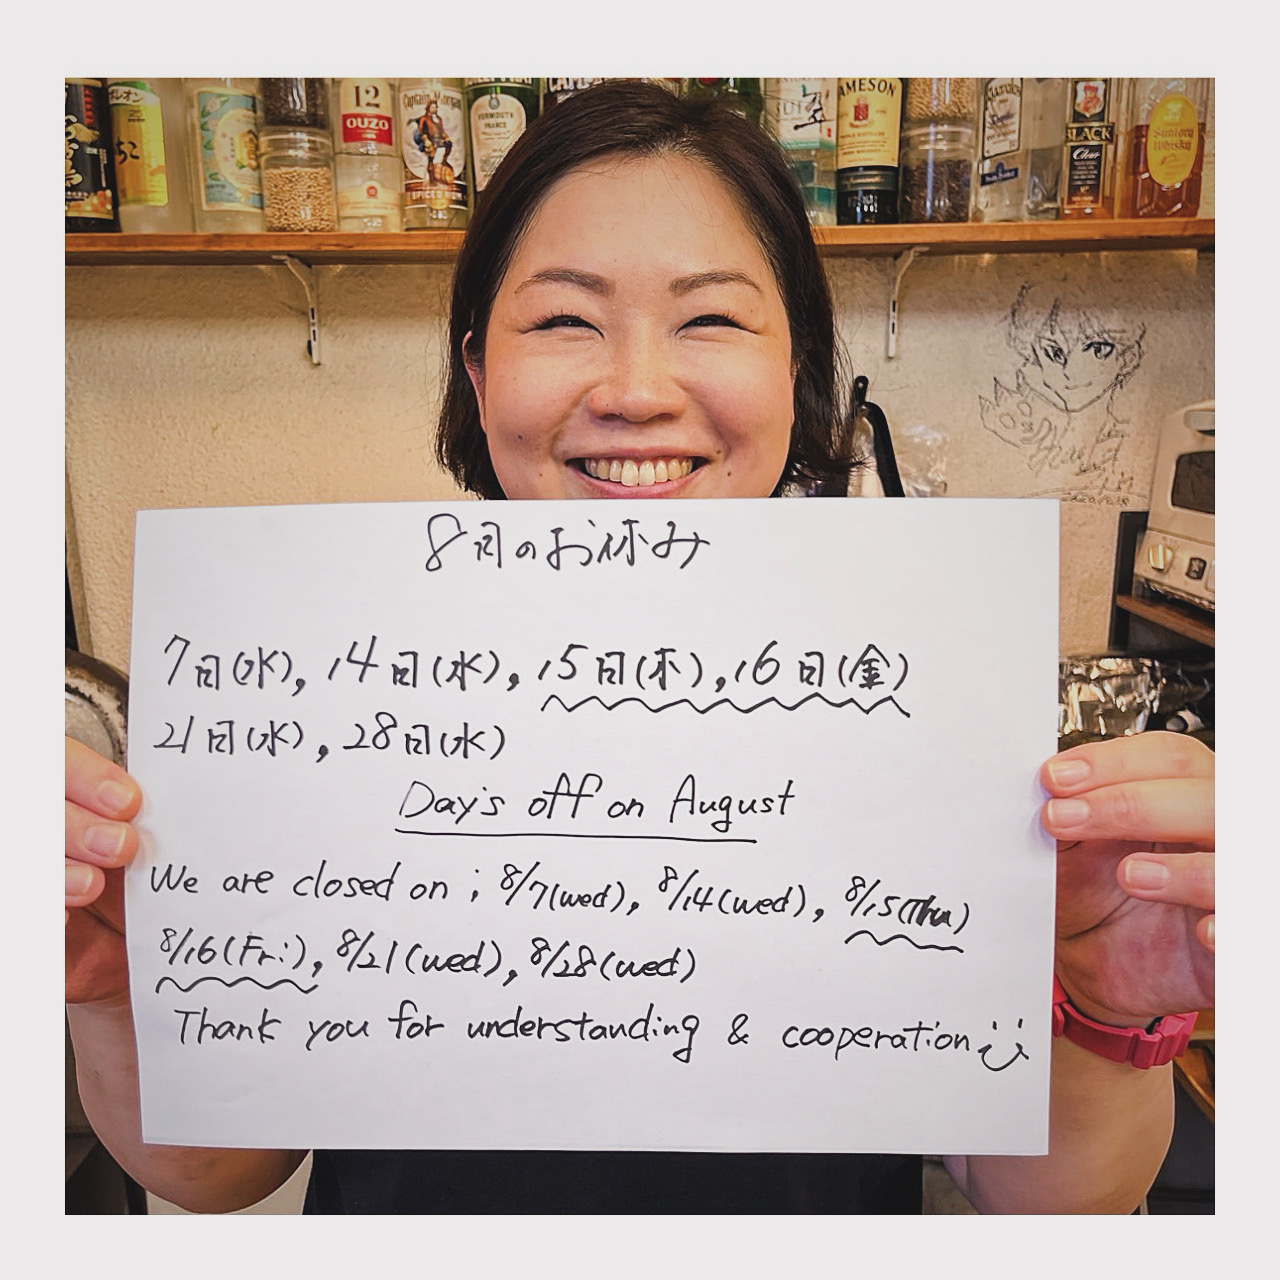 ボレオン
25
12
OUZO
Captain Morgan
SPICED RUM
VERMOUTH
FRANCE
JAMESON
BLACK
Clear
Suntory
Whisky
8月のお休み
7日(水), 14日(水), 15日(木), 16日(金)
21日(水), 28日(水)
Day's off on August
We are closed on ; 8/7(wed), 8/14(wed), 8/15(Thu)
8/16(Fri), 8/21(wed), 8/28(wed)
Thank you for understanding & cooperation